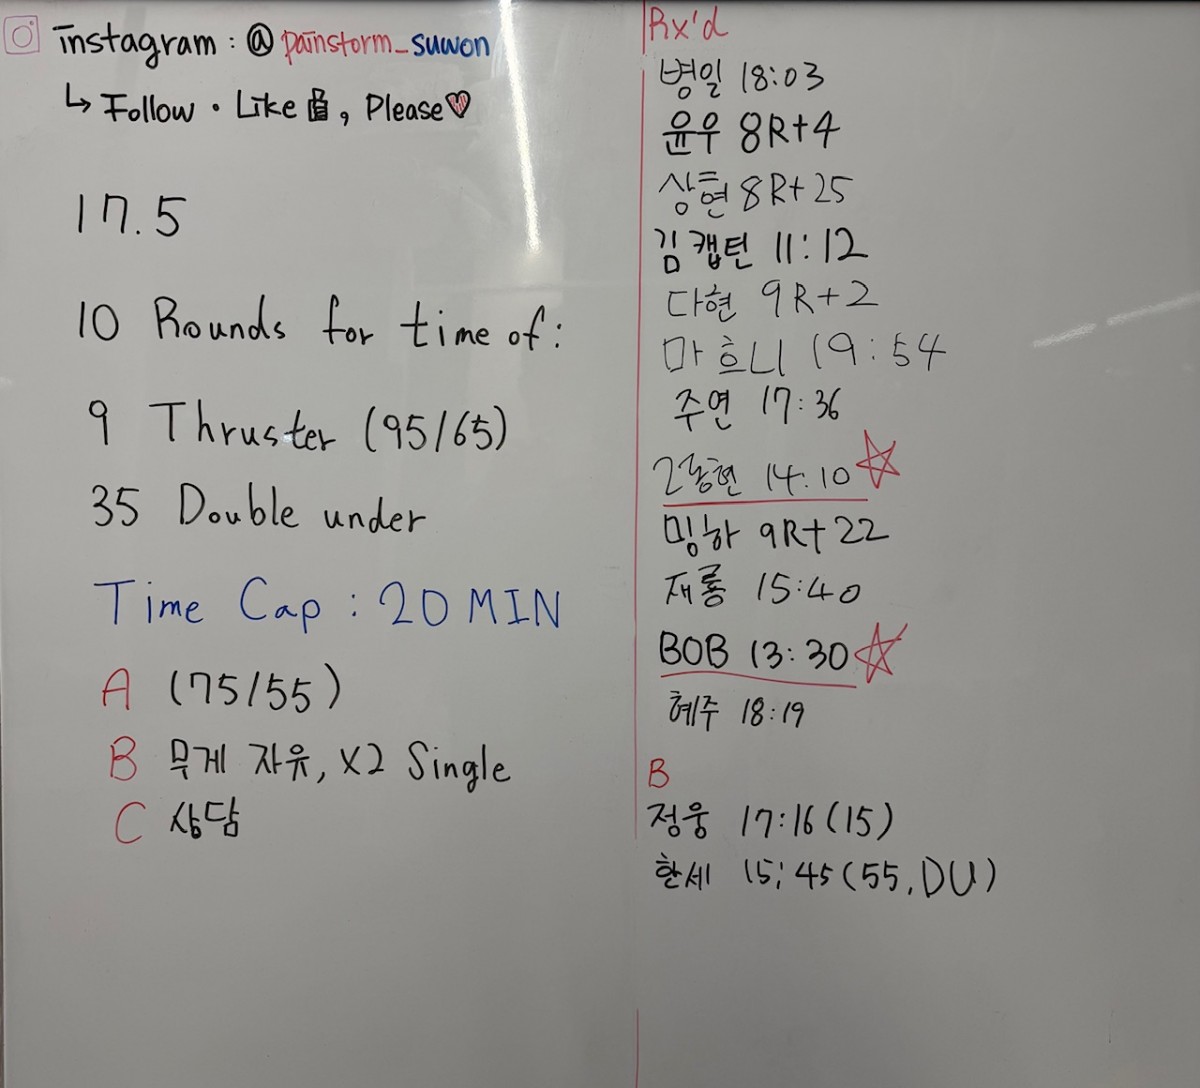 instagram : @ painstorm_suwon
↳ Follow · Like 👍, Please♡
17.5
10 Rounds for time of:
9 Thruster (95/65)
35 Double under
Time Cap : 20 MIN
A (75/55)
B 무게 자유, X2 Single
C 상담
Rx'd
병일 18:03
윤우 8R+4
상현 8R+25
김캡틴 11:12
다현 9R+2
마흐니 19:54
주연 17:36
14:10☆
밍하 9R+22
재룡 15:40
BOB 13:30☆
혜주 18:19
B
정웅 17:16(15)
한세 15:45(55, DU)